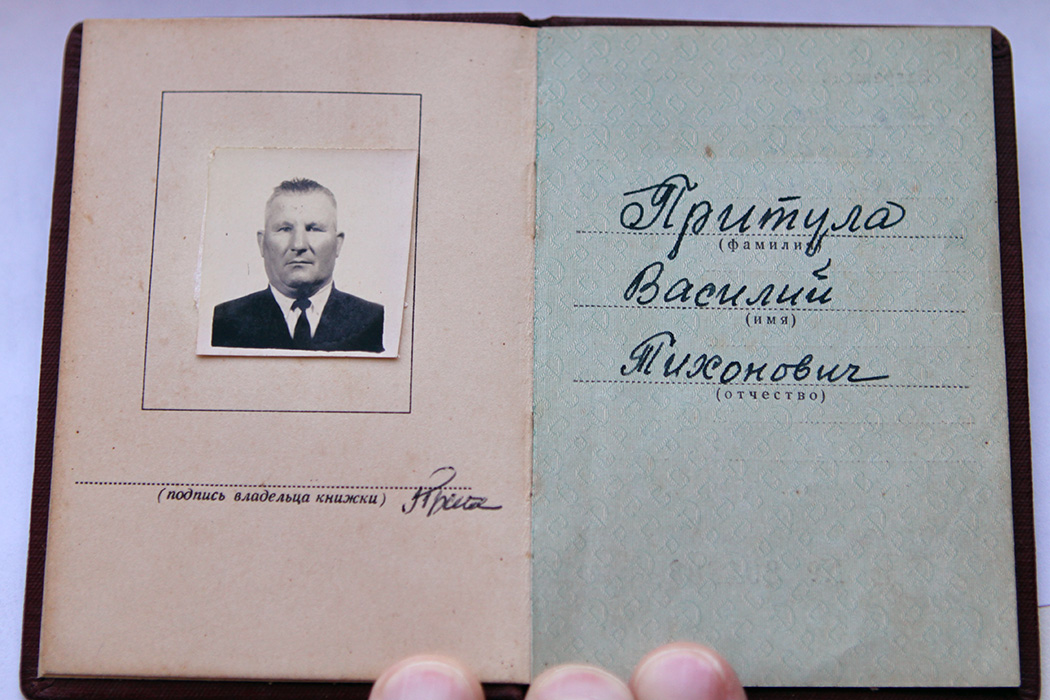 (подпись владельца книжки)
Притула
(фамилия)
Василий
(имя)
Тихонович
(отчество)